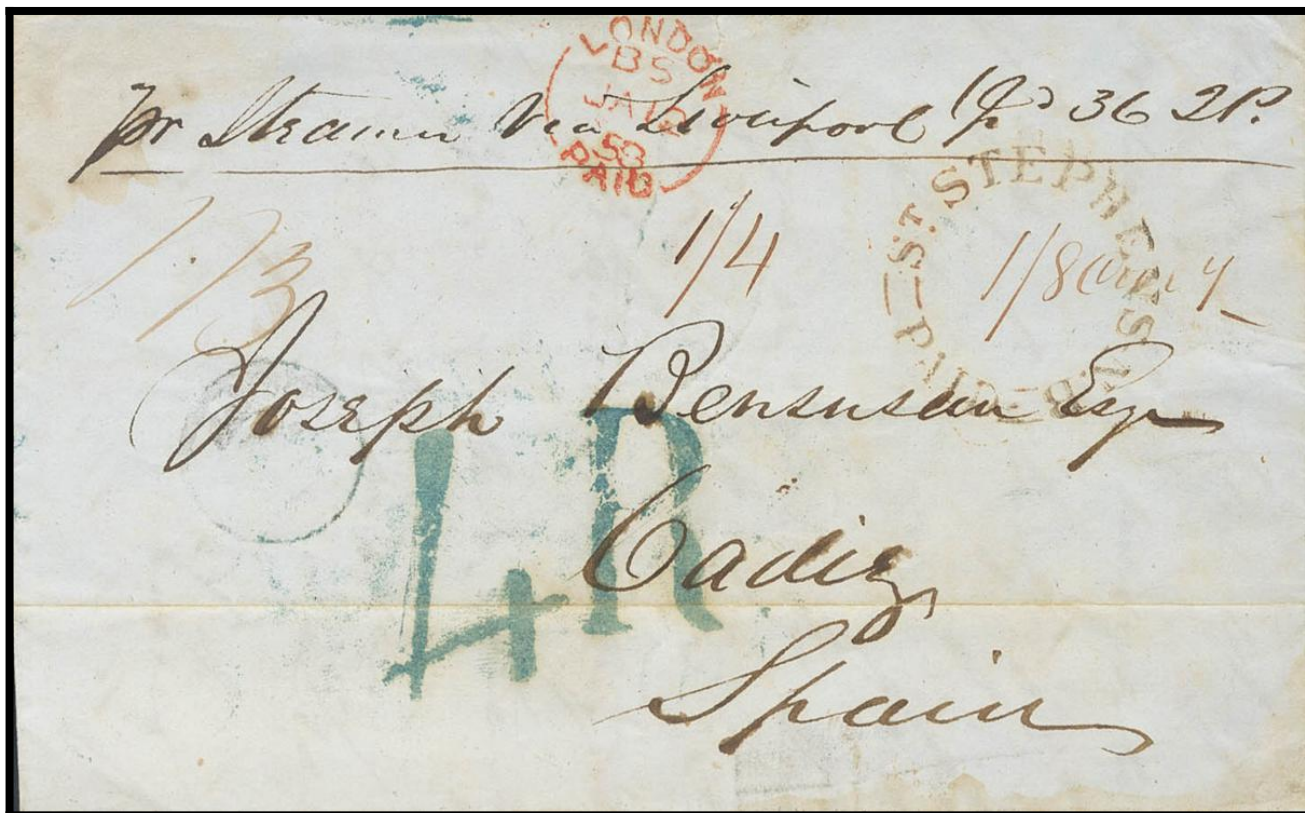 LONDON
BS
JA 10
53
PAID
pr Steamer Via Liverpool Pd 36 2P.
ST. STEPHENS
PAID
1/3
1/4
1/8
Joseph Bensusan Esqr
4R
Cadiz
Spain